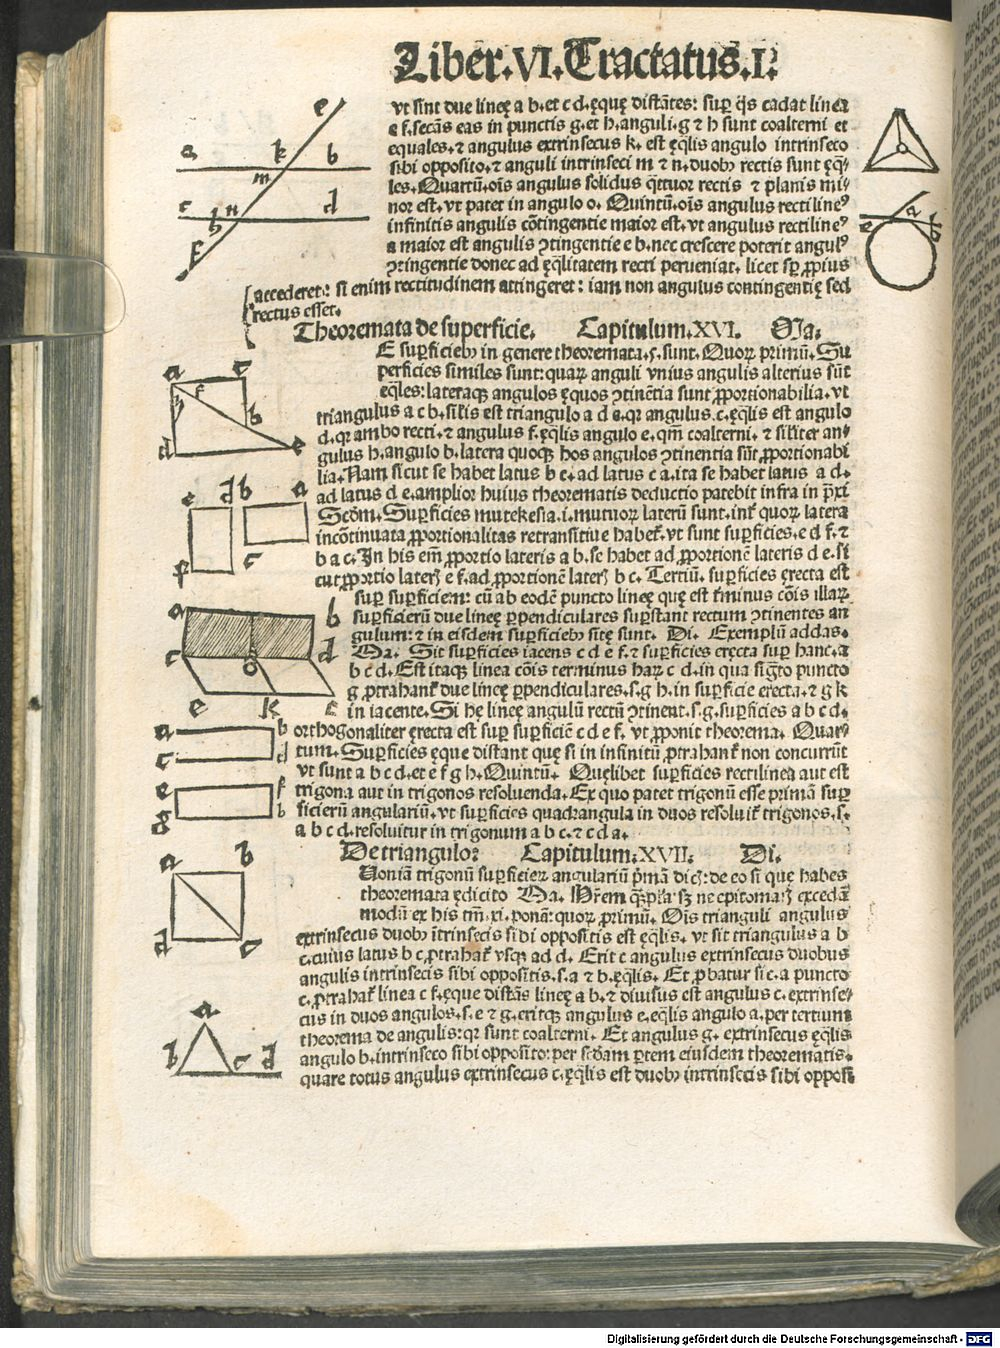 Liber.VI.Tractatus.I.
vt sint due lineę a b.et c d.ęquę distātes: suꝑ q̄s cadat linea
e f.secās eas in punctis g.et h.anguli.g ⁊ h sunt coalterni et
equales.⁊ angulus extrinsecus k. est ęq̄lis angulo intrinseco
sibi opposito.⁊ anguli intrinseci m ⁊ n.duobꝫ rectis sunt ęq̄-
les. Quartū.oīs angulus solidus q̄ttuor rectis ⁊ planis mi-
nor est.vt patet in angulo o. Quintū.oīs angulus rectilineꝰ
infinitis angulis cōtingentie maior est.vt angulus rectilineꝰ
a maior est angulis ꝯtingentie e b.nec crescere poterit angulꝰ
ꝯtingentie donec ad ęq̄litatem recti perueniat. licet sꝑ ꝓpius
accederet: si enim rectitudinem attingeret: iam non angulus contingentię sed
rectus esset.
Theoremata de superficie. Capitulum.XVI. Ma.
E suꝑficiebꝫ in genere theoremata.5.sunt. Quoꝝ primū. Su
perficies similes sunt: quaꝝ anguli vnius angulis alterius sūt
eq̄les: lateraqꝫ angulos ęquos ꝯtinētia sunt ꝓportionabilia. vt
triangulus a c b. sil̄is est triangulo a d e.qꝛ angulus.c.ęq̄lis est angulo
d.qꝛ ambo recti.⁊ angulus f.ęq̄lis angulo e.qm̄ coalterni. ⁊ sil̄iter an-
gulus h.angulo b.latera quoqꝫ hos angulos ꝯtinentia sūt ꝓportionabi
lia. Nam sicut se habet latus b c.ad latus c a.ita se habet latus a d.
ad latus d e.amplior huius theorematis deductio patebit infra in p̄xi
Scd̄m. Suꝑficies mutekesia.i.mutuoꝝ laterū sunt.int̄ quoꝝ latera
incōtinuata ꝓportionalitas retransitiue habet̄.vt sunt suꝑficies.e d f.⁊
b a c. In his em̄ ꝓportio lateris a b.se habet ad ꝓportionē lateris d e.si
cut ꝓportio lateꝝ e f.ad ꝓportionē lateꝝ b c. Tertiū. suꝑficies ęrecta est
suꝑ suꝑficiem: cū ab eodē puncto lineę quę est t̄minus cōis illaꝝ
suꝑficierū due lineę ꝑpendiculares suꝑstant rectum ꝯtinentes an
gulum: ⁊ in eisdem suꝑficiebꝫ sitę sunt. Di. Exemplū addas.
Ma. Sit suꝑficies iacens c d e f.⁊ suꝑficies eręcta suꝑ hanc.a
b c d. Est itaqꝫ linea cōis terminus haꝝ c d.in qua sig̅to puncto
g ꝓtrahant̄ due lineę ꝑpendiculares.s.g h.in suꝑficie erecta.⁊ g k
in iacente. Si hę lineę angulū rectū ꝯtineāt.s.g.suꝑficies a b c d.
orthogonaliter ęrecta est suꝑ suꝑficiē c d e f. vt ꝓponit theorema. Quar-
tum. Suꝑficies ęque distant que si in infinitū ꝓtrahant̄ non concurrūt
vt sunt a b c d.et e f g h. Quintū. Quęlibet suꝑficies rectilinea aut est
trigona aut in trigonos resoluenda. Ex quo patet trigonū esse primā suꝑ
ficierū angulariū.vt suꝑficies quadrangula in duos resoluit̄ trigonos.s.
a b c d.resoluitur in trigonum a b c.⁊ c d a.
De triangulo: Capitulum.XVII. Di.
Uoniā trigonū suꝑficieꝝ angulariū p̄mā dicꝭ: de eo si quę habes
theoremata ędicito Ma. ne epitomaꝝ excedā
modū ex his tm̄.xi.ponā: quoꝝ primū. Oīs trianguli angulus
extrinsecus duobꝫ ītrinsecis sibi oppositis est ęq̄lis. vt sit triangulus a b
c.cuius latus b c ꝓtrahat̄ vsqꝫ ad d. Erit c angulus extrinsecus duobus
angulis intrinsecis sibi oppositis.s.a ⁊ b.ęq̄lis. Et ꝓbatur si c.a puncto
c.ꝓtrahat̄ linea c f.ęque distās lineę a b.⁊ diuisus est angulus c.extrinse-
cus in duos angulos.s.e ⁊ g.eritqꝫ angulus e.eq̄lis angulo a.per tertium
theorema de angulis: qꝛ sunt coalterni. Et angulus g. extrinsecus ęq̄lis
angulo b.intrinseco sibi opposito: per scd̄am ꝑtem eiusdem theorematis.
quare totus angulus extrinsecus c.ęq̄lis est duobꝫ intrinsecis sibi opposi
e
a k b
m
c n d
h
f
a
e b
a c
f
h b
d e
e d b a
f c
a b
c d
g
e k f
a b
c d
e f
g h
a b
d c
a
b c d
Digitalisierung gefördert durch die Deutsche Forschungsgemeinschaft - DFG